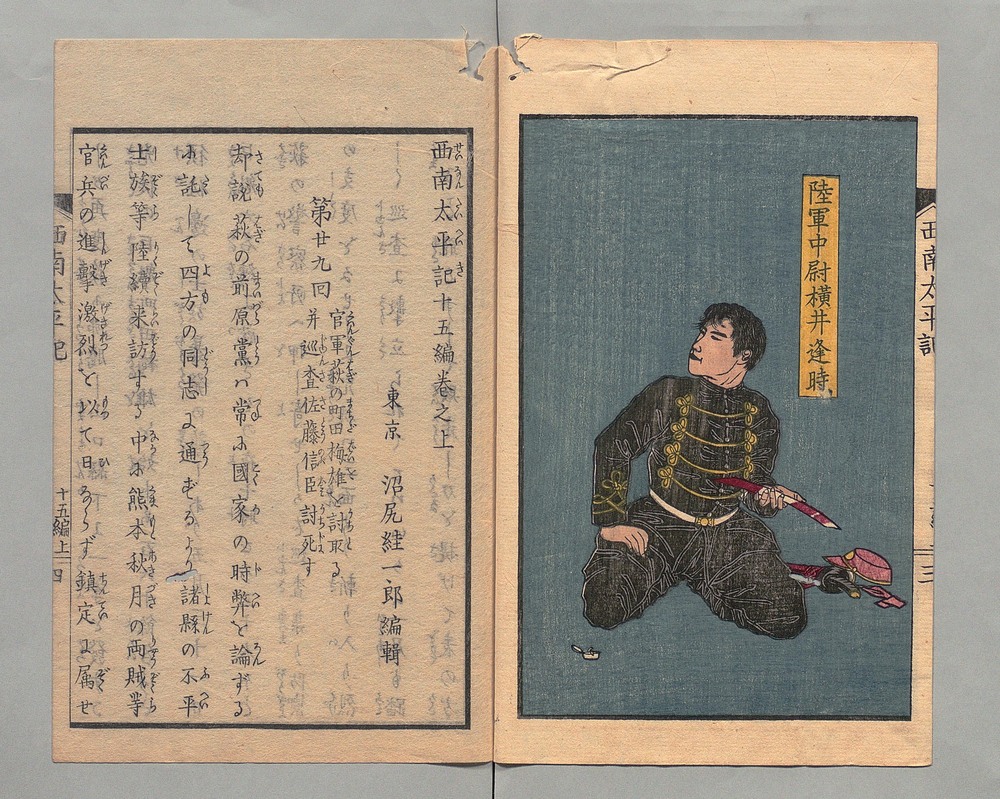 西南太平記
三
陸軍中尉横井逢時
西南太平記十五編巻之上
東京 沼尻絓一郎編輯
第廿九回 官軍萩の町田梅雄を討取る
并巡査佐藤信臣討死す
却説萩の前原黨ハ常に國家の時弊を論ずる
に託して四方の同志に通ずるより諸縣の不平
士族等陸續来訪する中に熊本秋月の両賊等
官兵の進擊激烈を以て日ならず鎮定に属せ
西南太平記
十五編上
四